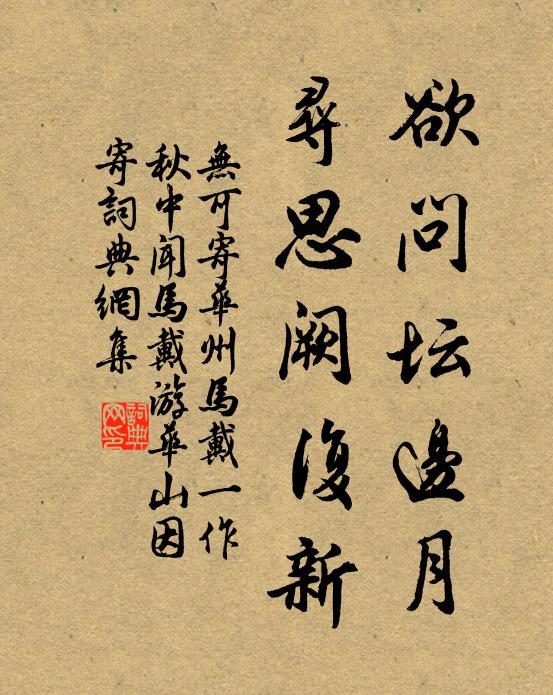 欲问坛邊月
尋思阙復新
無可寄華州馬戴一作
秋中闻馬戴游華山因
寄詞典網集
詞典网印